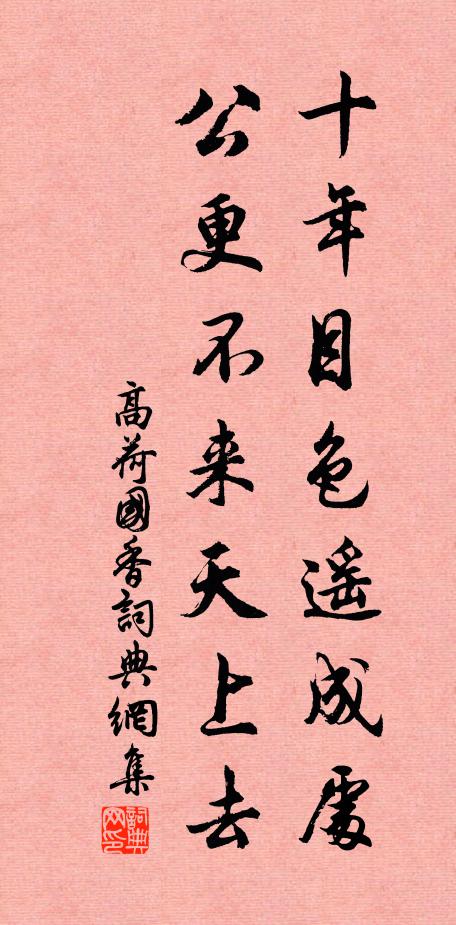 十年目色遥成處
公更不来天上去
高荷國香詞典網集
詞典網印